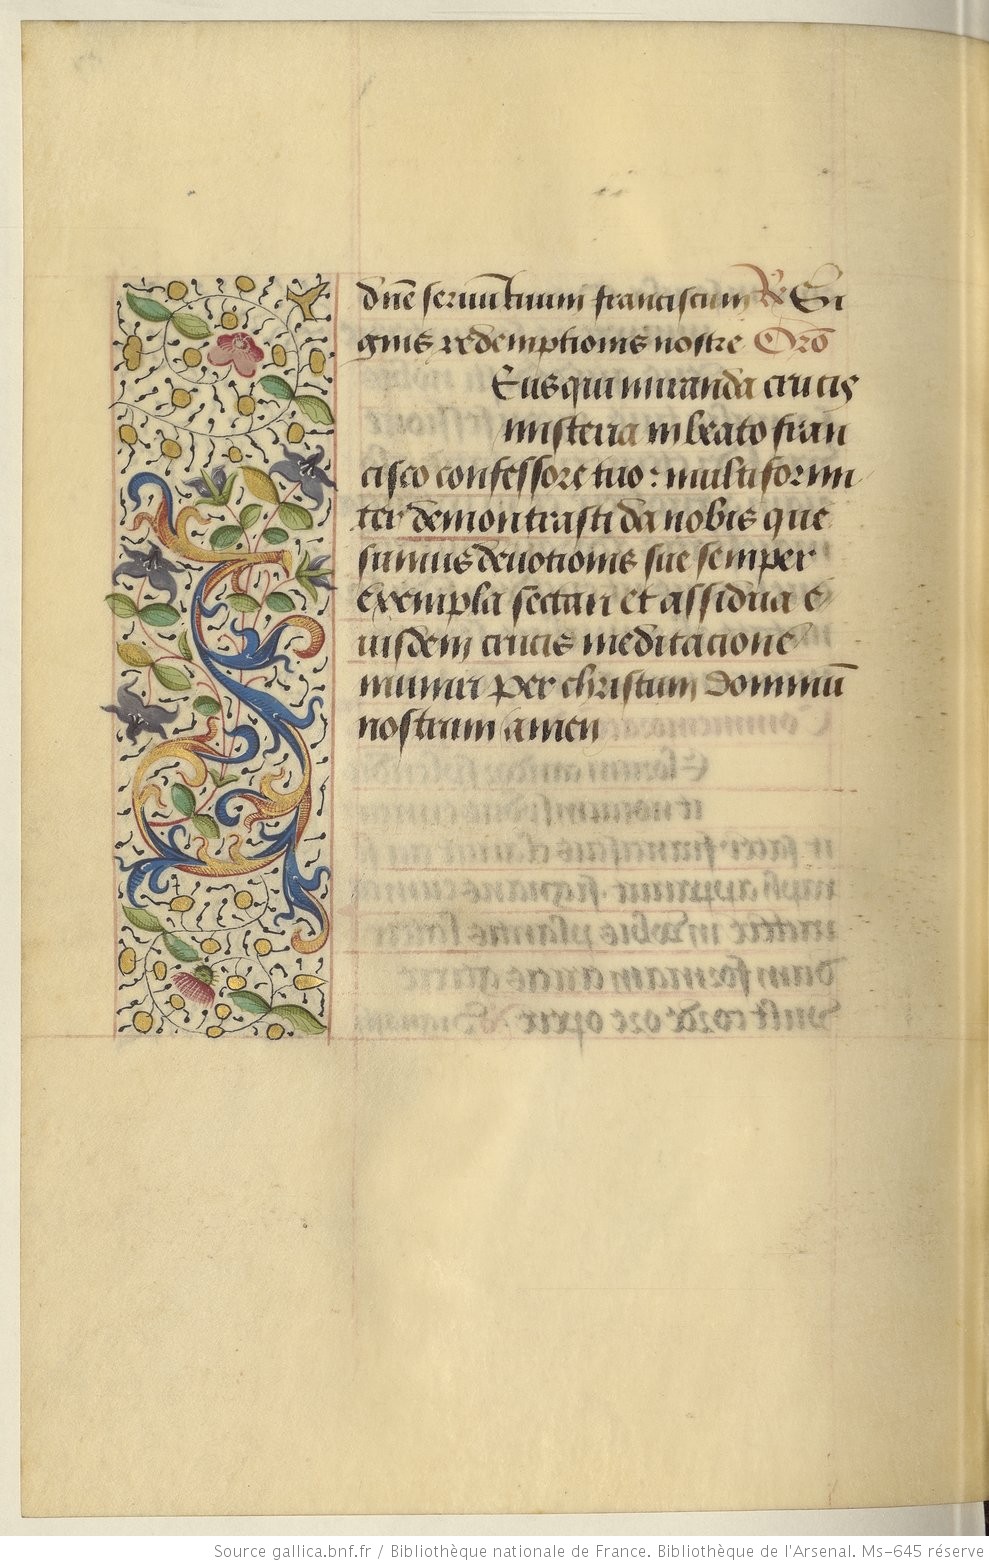 dn̄e seruum tuum franciscum ℟ Si
gnis redemptionis nostre Orō
Eus qui miranda crucis
misteria in beato fran
cisco confessore tuo: multiformi
ter demontrasti da nobis que
sumus deuotionis sue semper
exempla sectari et assidua e
iusdem crucis meditacione
muniri per christum dominū
nostrum amen
Source gallica.bnf.fr / Bibliothèque nationale de France. Bibliothèque de l'Arsenal. Ms-645 réserve